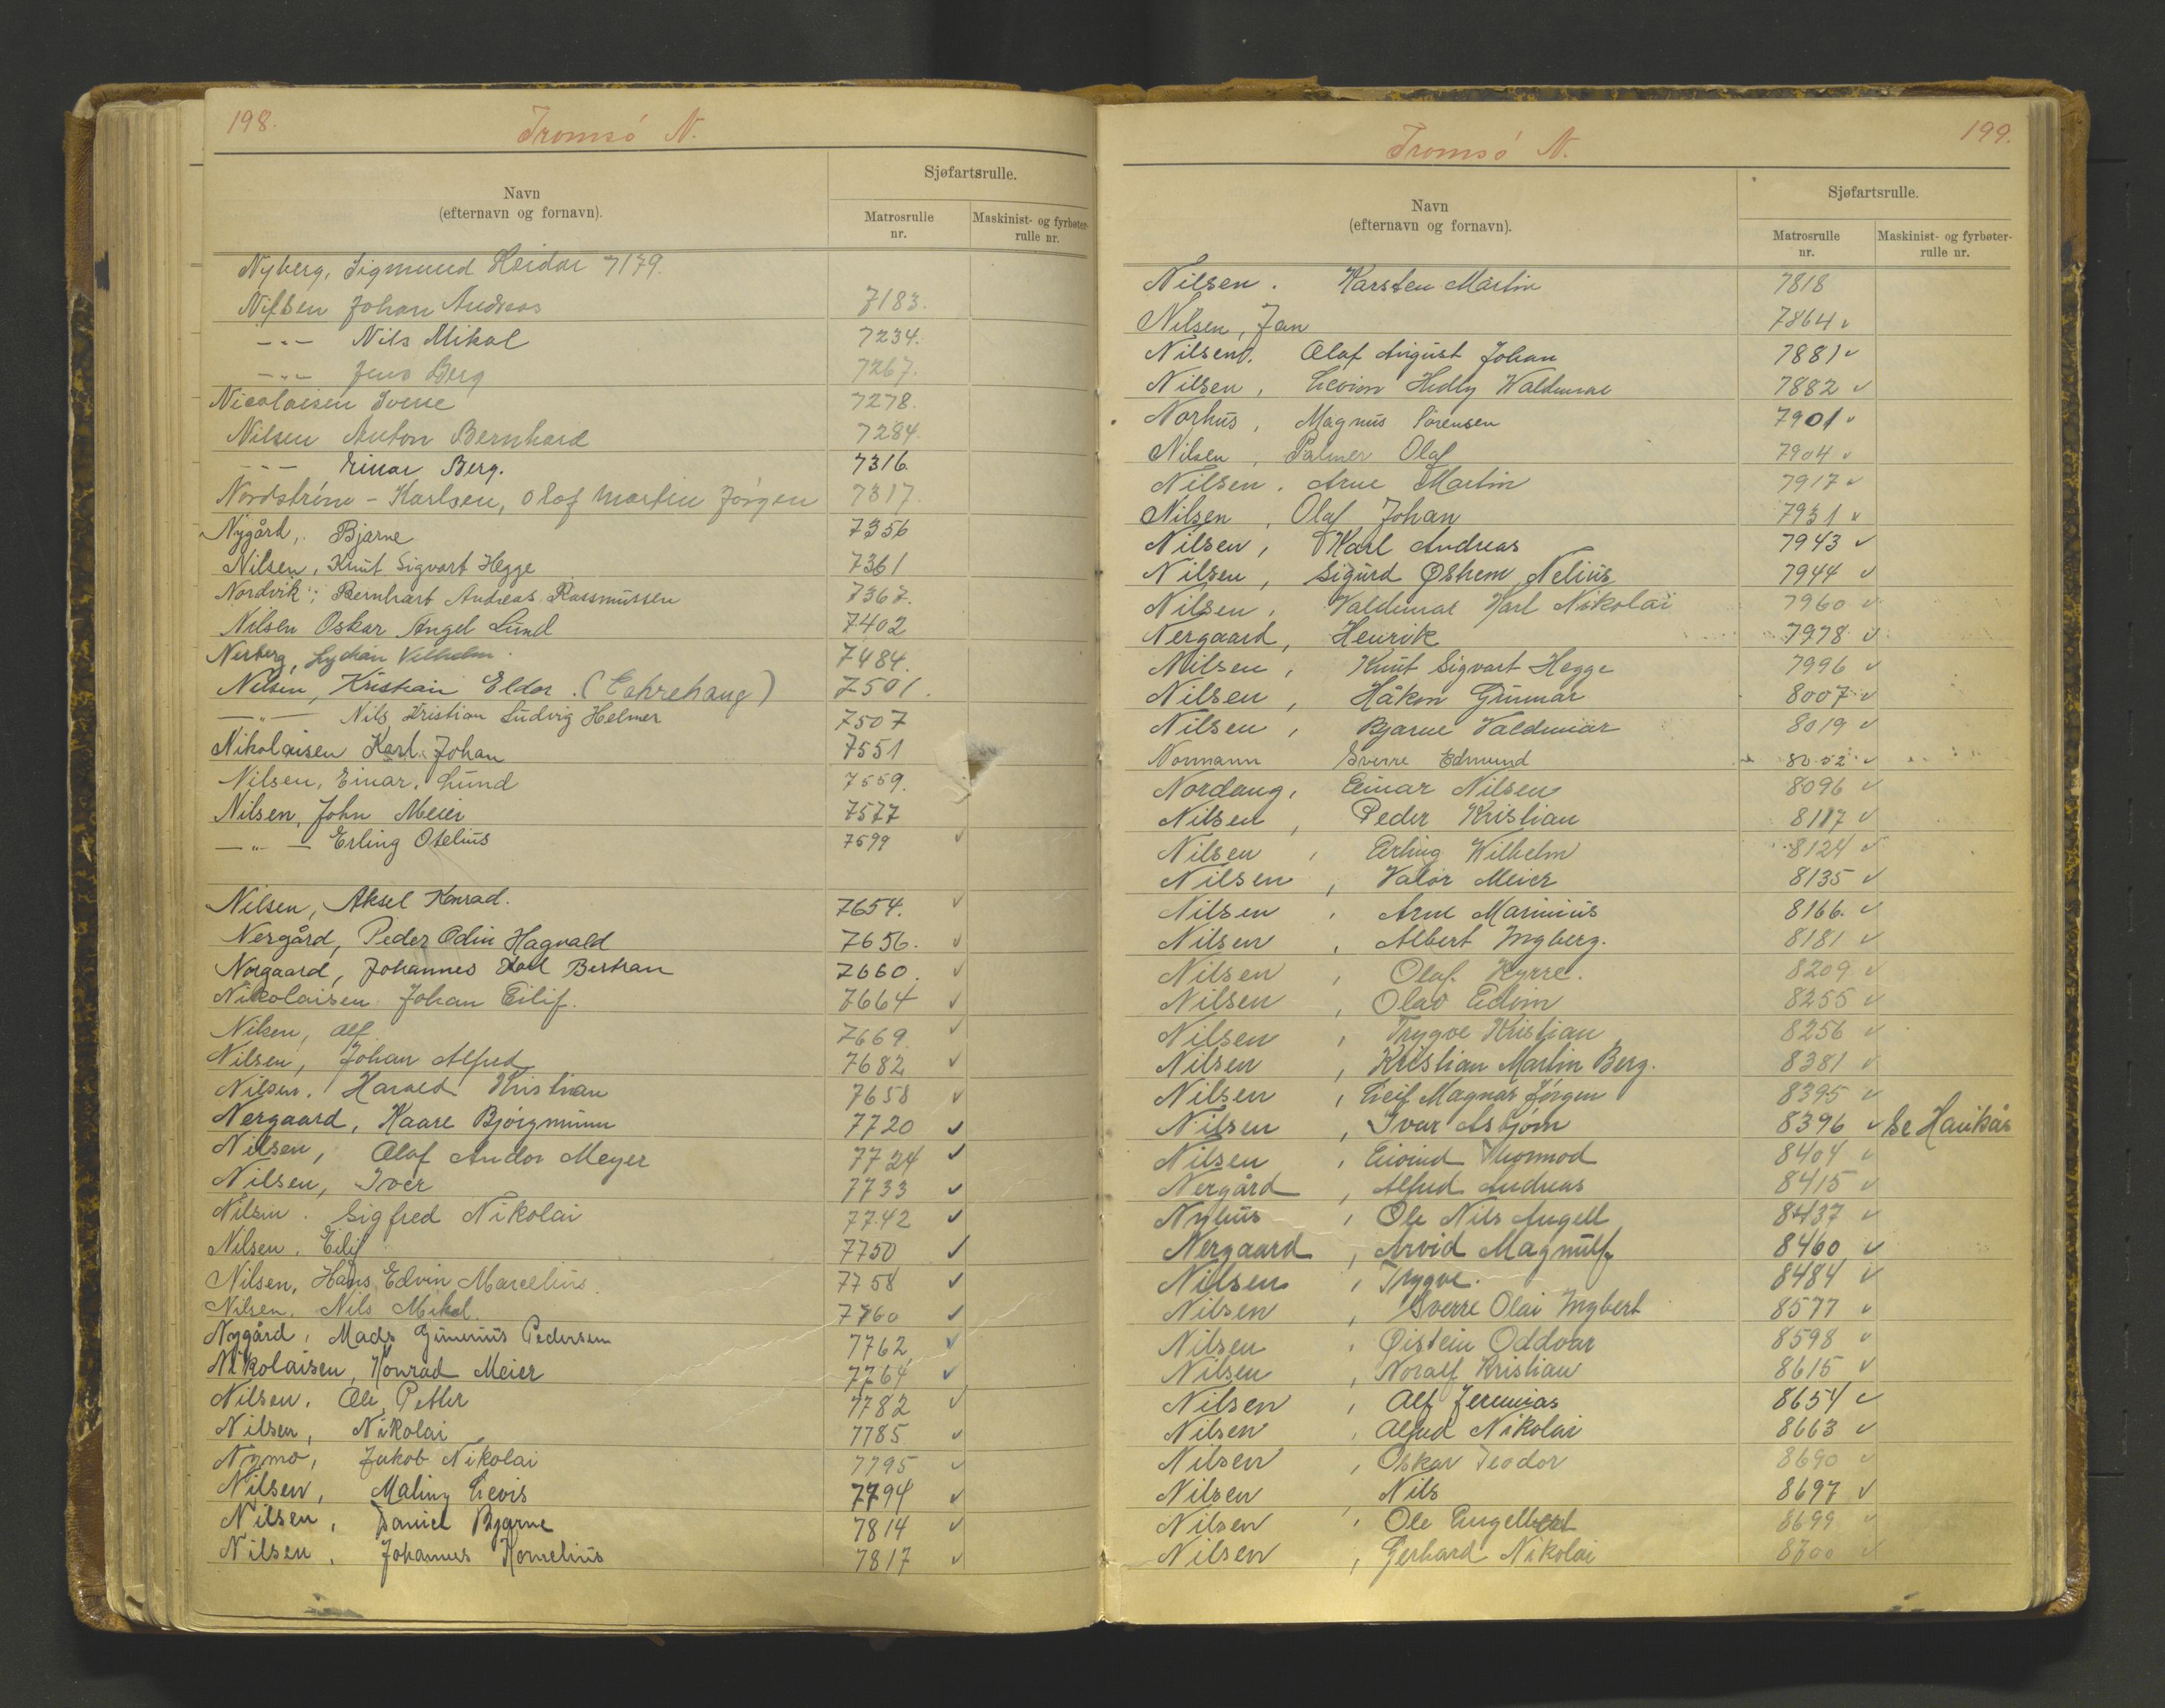 198.
Tromsö N.
Navn
(efternavn og fornavn).
Sjøfartsrulle.
Matrosrulle
nr.
Maskinist- og fyrbøter-
rulle nr.
Nyberg, Sigmund Reidar 7179.
Nilsen Johan Andreas 7183.
-"- Nils Mikal 7234.
-"- Jens Berg 7267.
Nicolaisen Sverre 7278.
Nilsen Anton Bernhard 7284.
-"- Einar Berg. 7316.
Nordström - Karlsen, Olaf Martin Jörgen 7317.
Nygård, Bjarne 7356
Nilsen, Knut Sigvart Hegge 7361
Nordvik, Bernhart Andreas Rassmussen 7367.
Nilsen Oskar Angel Lund 7402
Vilhelm 7484.
Nilsen, Kristian Eldor. 7501.
-"- Nils Kristian Ludvig Helmer 7507
Nikolaisen Karl Johan 7551
Nilsen, Einar, Lund 7559.
Nilsen, John Meier 7577
-"- Erling Otelius 7599 ✓
Nilsen, Aksel Konrad. 7654. ✓
Nergård, Peder Odin Hagvald 7656. ✓
Norgaard, Johannes Karl Bertran 7660. ✓
Nikolaisen Johan Eilif. 7664 ✓
Nilsen, Alf 7669. ✓
Nilsen, Johan Alfred 7682 ✓
Nilsen, Harald Kristian 7658 ✓
Nergaard, Kaare Bjørgmunn 7720 ✓
Nilsen, Olaf Andor Meyer 7724 ✓
Nilsen, Iver 7733 ✓
Nilsen. Sigfred Nikolai 7742 ✓
Nilsen, Eilif 7750 ✓
Nilsen, Hans Edvin Marcelius. 7758 ✓
Nilsen, Nils Mikal. 7760 ✓
Nygård, Mads Gunerius Pedersen 7762 ✓
Nikolaisen, Konrad Meier 7764 ✓
Nilsen, Ole Petter 7782 ✓
Nilsen, Nikolai 7785 ✓
Nymo, Jakob Nikolai 7795 ✓
Nilsen, Maling Levis 7794 ✓
Nilsen, Daniel Bjarne 7814 ✓
Nilsen, Johannes Kornelius 7817 ✓
199.
Tromsö N.
Navn
(efternavn og fornavn).
Sjøfartsrulle.
Matrosrulle
nr.
Maskinist- og fyrbøter-
rulle nr.
Nilsen. Karsten Martin 7818
Nilsen, Jan 7864 ✓
Nilsen. Olaf August Johan 7881 ✓
Nilsen, Hedly Waldemar 7882 ✓
Norhus, Magnus Sørensen 7901 ✓
Nilsen, Palmer Olaf 7904 ✓
Nilsen. Arne Martin 7917 ✓
Nilsen, Olaf Johan 7931 ✓
Nilsen, Karl Andreas 7943 ✓
Nilsen, Sigurd Øshem Nelius 7944 ✓
Nilsen, Valdemar Karl Nikolai 7960 ✓
Nergaard, Henrik 7978 ✓
Nilsen, Knut Sigvart Hegge 7996 ✓
Nilsen, Håkon Gunnar 8007 ✓
Nilsen, Bjarne Valdemar 8019 ✓
Normann Sverre Edmund 8052 ✓
Nordaug, Einar Nilsen 8096 ✓
Nilsen, Peder Kristian 8117 ✓
Nilsen, Erling Wilhelm 8124 ✓
Nilsen, Valör Meier 8135 ✓
Nilsen, Arne Marinius 8166. ✓
Nilsen, Albert Ingberg. 8181 ✓
Nilsen, Olaf. Kyrre. 8209 ✓
Nilsen, Olav Edvin 8255 ✓
Nilsen, Trygve Kristian 8256 ✓
Nilsen, Kristian Martin Berg. 8381 ✓
Nilsen, Leif Magnar Jörgen 8395 ✓
Nilsen, Ivar Asbjörn 8396 ✓ Se Haukås
Nilsen, Eivind Thormod 8404 ✓
Nergård, Alfred Andreas 8415 ✓
Nyhus, Ole Nils Angell 8437 ✓
Nergaard, Arvid Magnulf 8460 ✓
Nilsen, Trygve. 8484 ✓
Nilsen, Sverre Olai Ingbert 8577 ✓
Nilsen, Øistein Oddvar 8598 ✓
Nilsen, Noralf Kristian 8615 ✓
Nilsen, Alf Jeremias 8654 ✓
Nilsen, Alfred Nikolai 8663 ✓
Nilsen, Oskar Teodor 8690 ✓
Nilsen, Nils 8697 ✓
Nilsen, Ole Engelbert 8699 ✓
Nilsen, Gerhard Nikolai 8700 ✓